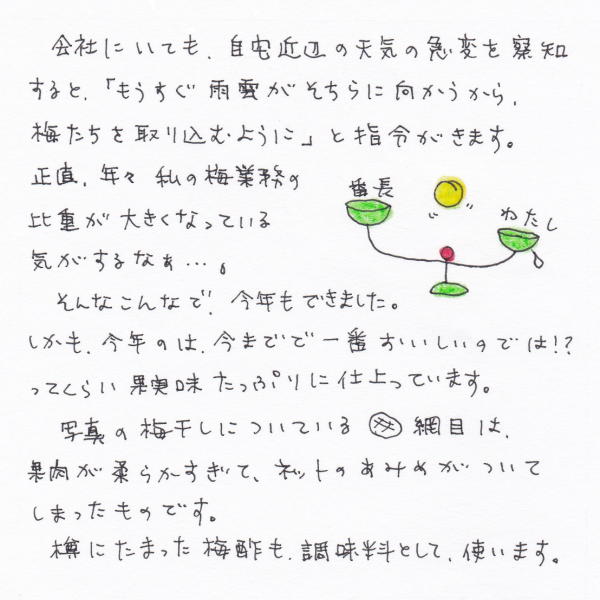 会社にいても、自宅近辺の天気の急変を察知
すると、「もうすぐ雨雲がそちらに向かうから、
梅たちを取り込むように」と指令がきます。
正直、年々私の梅業務の
比重が大きくなっている
気がするなぁ…。
番長
わたし
そんなこんなで、今年もできました。
しかも、今年のは、今までで一番おいしいのでは!?
ってくらい果実味たっぷりに仕上っています。
写真の梅干しについている網目は、
果肉が柔らかすぎて、ネットのあみめがついて
しまったものです。
樽にたまった梅酢も、調味料として、使います。